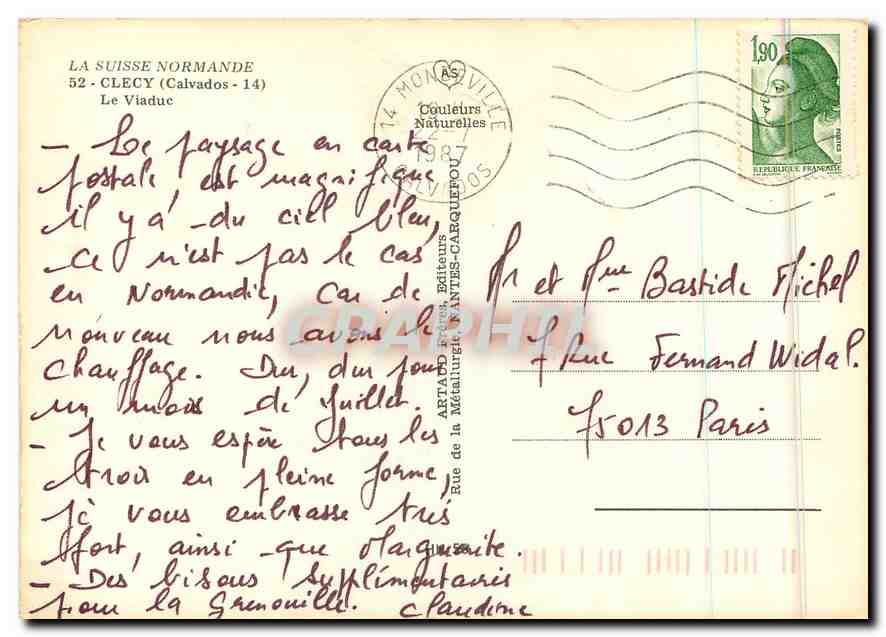 LA SUISSE NORMANDE
52 - CLECY (Calvados - 14)
Le Viaduc
— Le paysage en carte
postale, est magnifique
il y a du ciel bleu,
Ce n'est pas le cas
en Normandie, Car de
nouveau nous avons le
chauffage. Dur, dur pour
un mois de Juillet.
- Je vous espère tous les
trois en pleine forme,
je vous embrasse très
fort, ainsi que Marguerite.
- Des bisous supplémentaires
pour la Grenouille. Claudine
AS
Couleurs
Naturelles
14 MONDEVILLE
22-7
1987
CALVADOS
ARTAUD Frères, Editeurs
Rue de la Métallurgie, NANTES-CARQUEFOU
1,90
POSTES
REPUBLIQUE FRANÇAISE
Mr et Mme Bastide Michel
7 Rue Fernand Widal.
75013 Paris
CPAPHIL